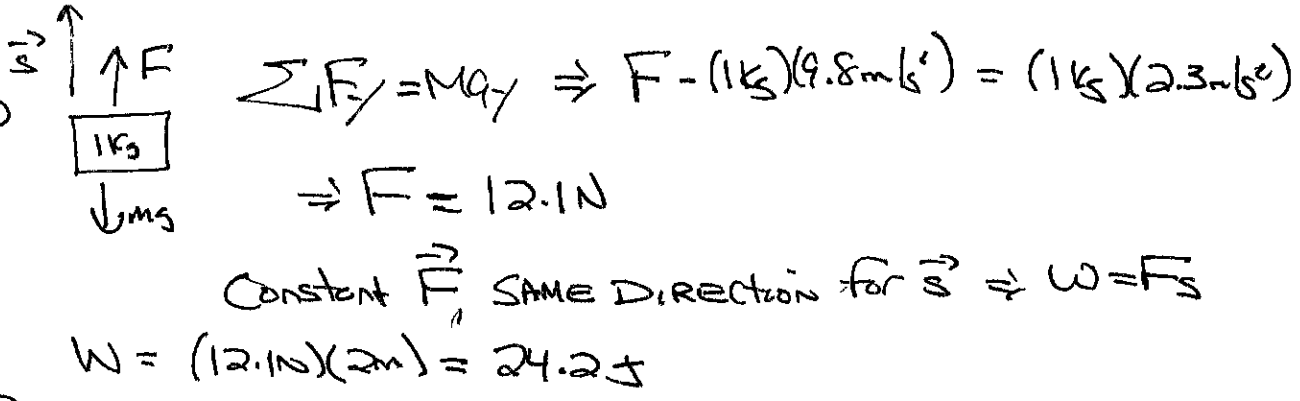 s⃗ ↑ ↑F ΣFy = May ⇒ F - (1kg)(9.8m/s²) = (1kg)(2.3m/s²)
1kg
↓mg ⇒ F = 12.1N
Constant F⃗, SAME DIRECTION for s⃗ ⇒ W=Fs
W = (12.1N)(2m) = 24.2J